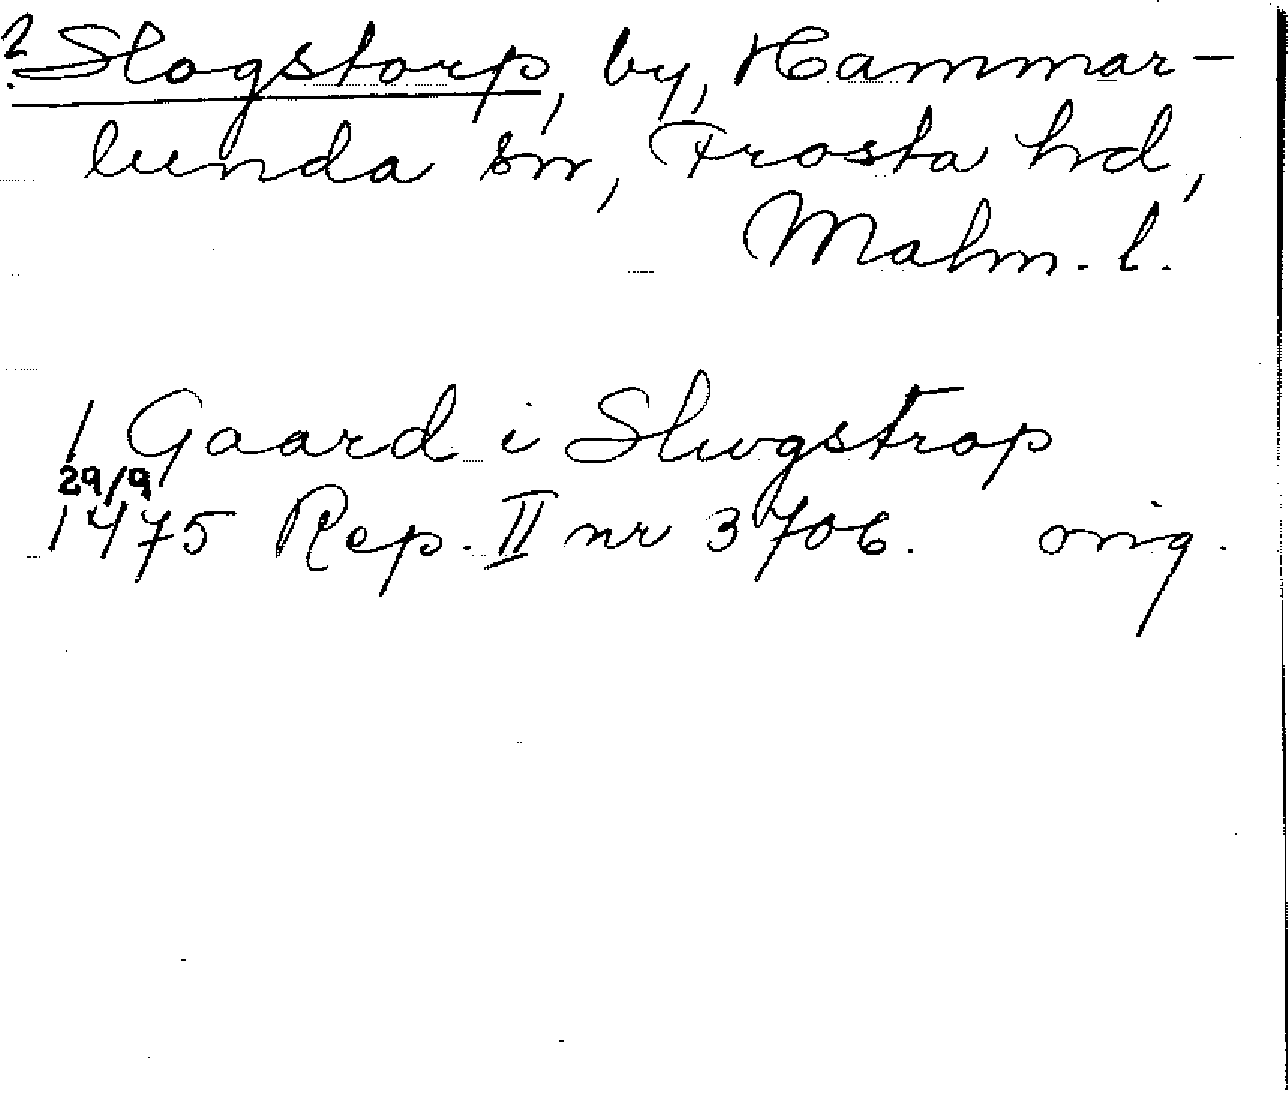 ? Slogstorp, by, Hammar-
lunda sn, Frosta hd,
Malm. l.
1 Gaard i Slwgstrop
29/9
1475 Rep. II nr 3706. orig.